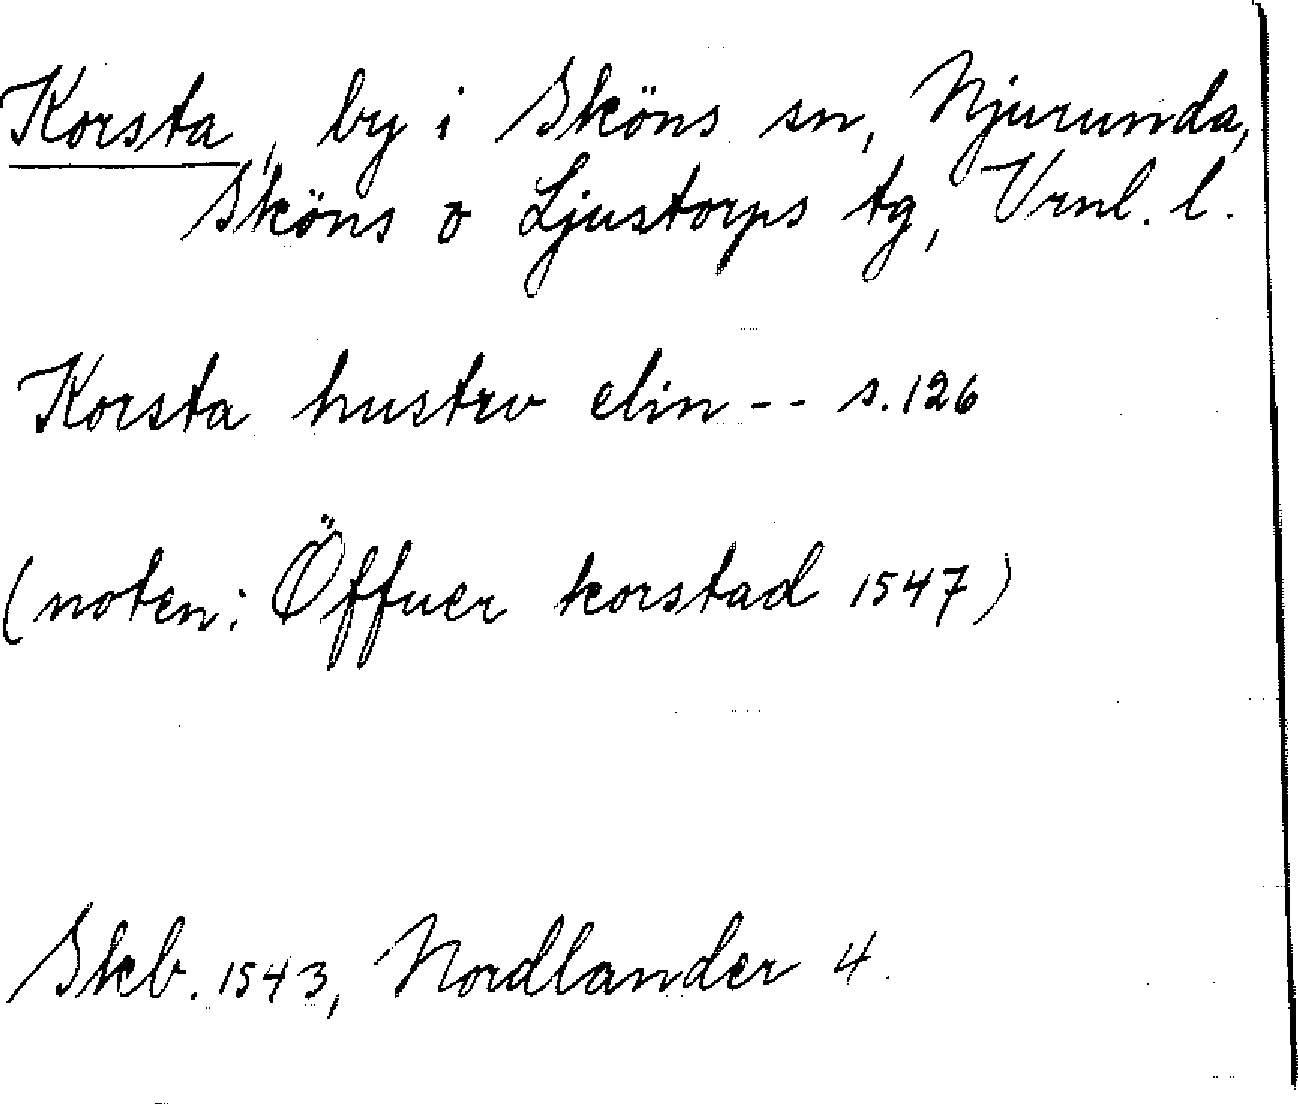 Korsta, by i Sköns sn, Njurunda,
Sköns o Ljustorps tg, Vrnl. l.
Korsta hustrv elin -- s. 126
(noten: Öffuer korstad 1547)
Skb. 1543, Nordlander 4.